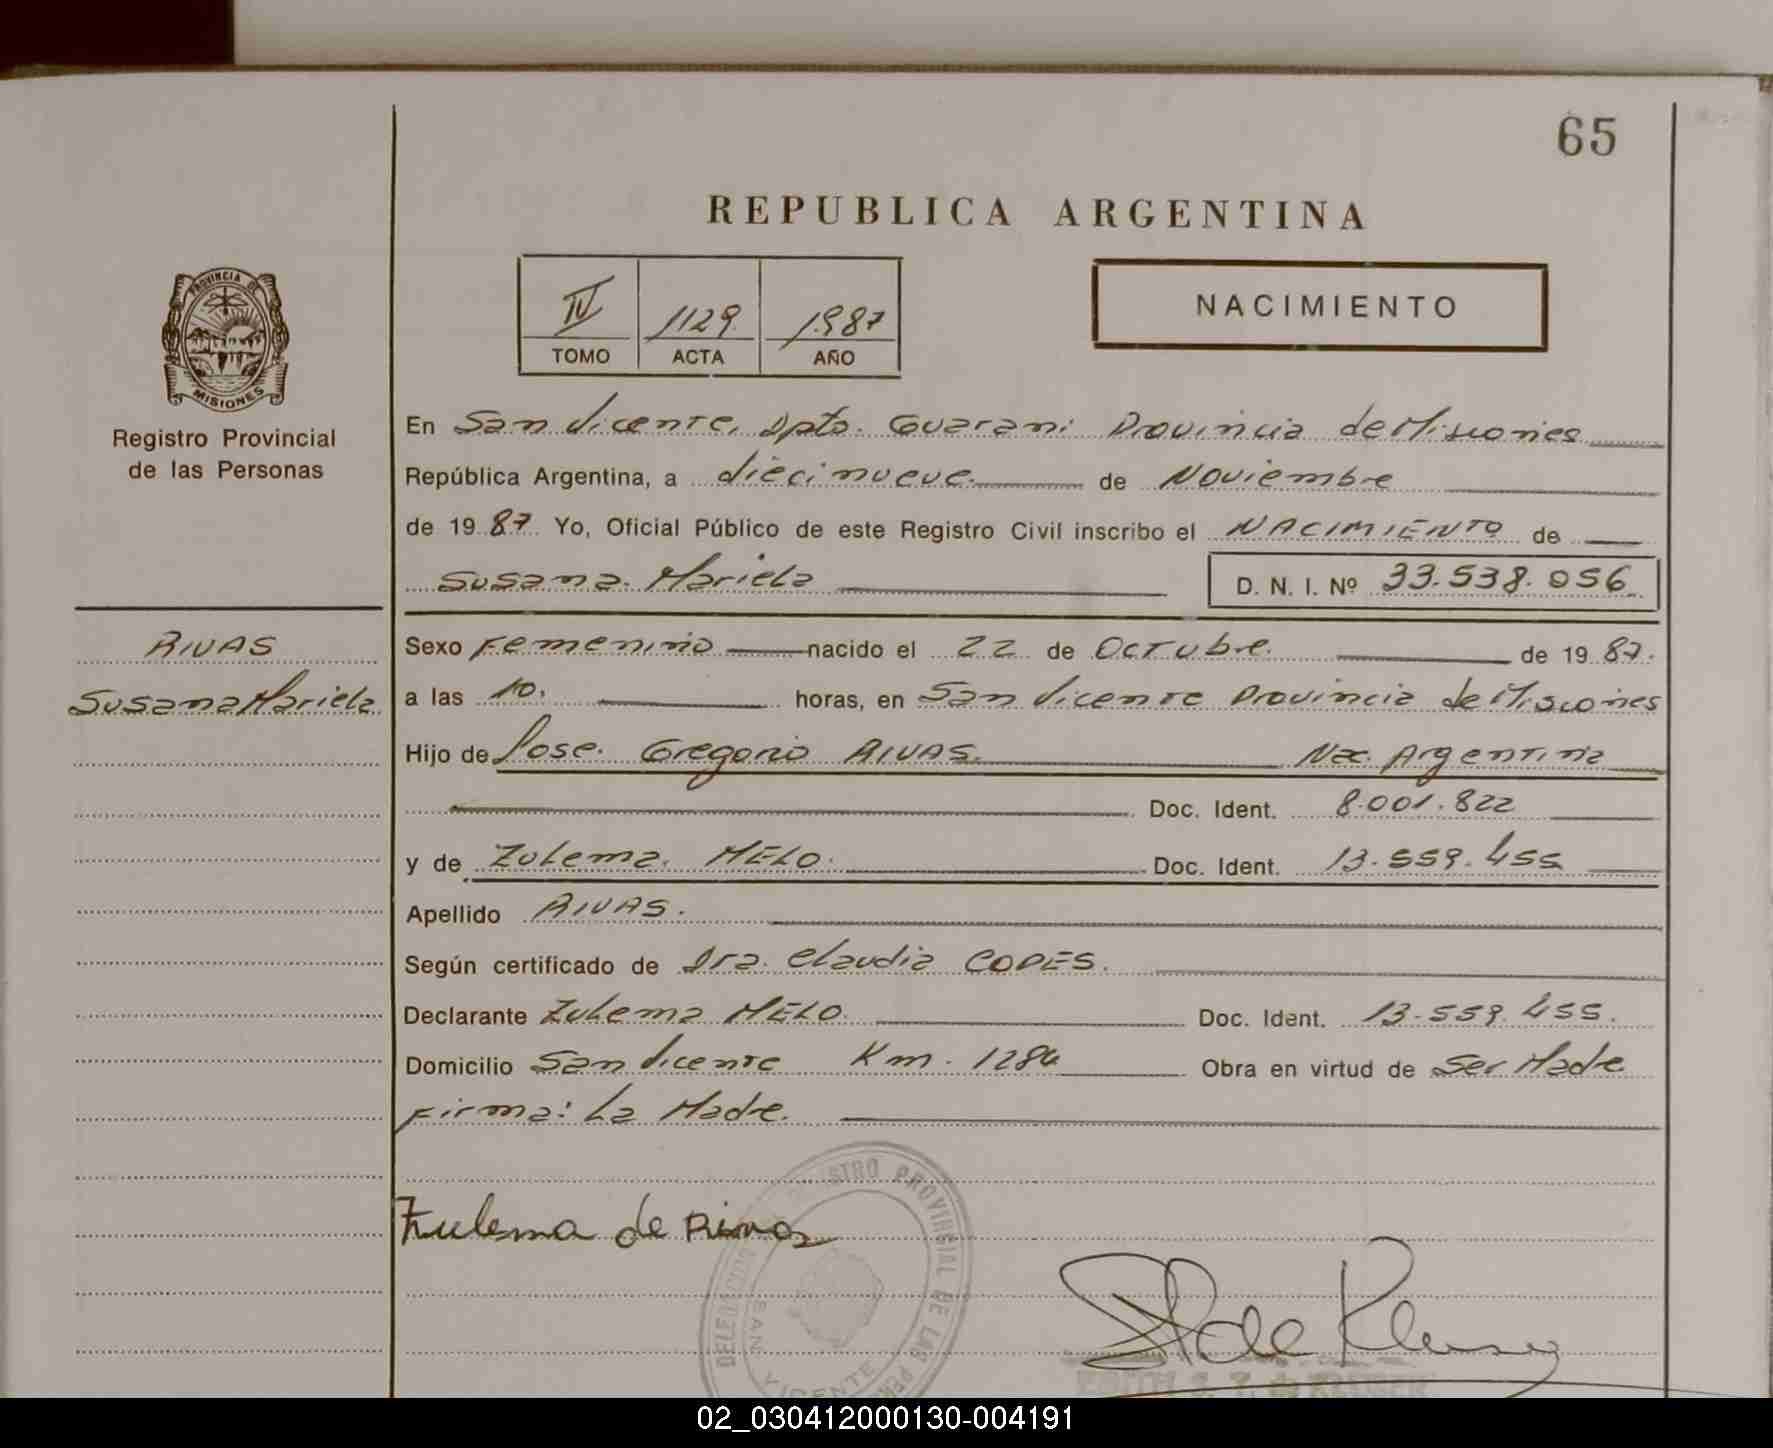 65
REPUBLICA ARGENTINA
IV 1129 1987
TOMO ACTA AÑO
NACIMIENTO
PROVINCIA DE
MISIONES
Registro Provincial
de las Personas
En San Vicente, Dpto. Guarani Provincia de Misiones
República Argentina, a diecinueve de Noviembre
de 19 87 Yo, Oficial Público de este Registro Civil inscribo el NACIMIENTO de
Susana Mariela D. N. I. Nº 33.538.056
RIVAS
Susana Mariela
Sexo Femenino nacido el 22 de Octubre de 19 87.
a las 10. horas, en San Vicente Provincia de Misiones
Hijo de Jose Gregorio RIVAS Nac. Argentina
Doc. Ident. 8.001.822
y de Zulema MELO. Doc. Ident. 13.559.455
Apellido RIVAS.
Según certificado de Dra. Claudia CODES.
Declarante Zulema MELO. Doc. Ident. 13.559.455.
Domicilio San Vicente Km. 1286 Obra en virtud de Ser Madre
Firma: La Madre.
Zulema de Rivas
DELEGACION REGISTRO PROVINCIAL DE LAS PER
SAN VICENTE
de
02_030412000130-004191